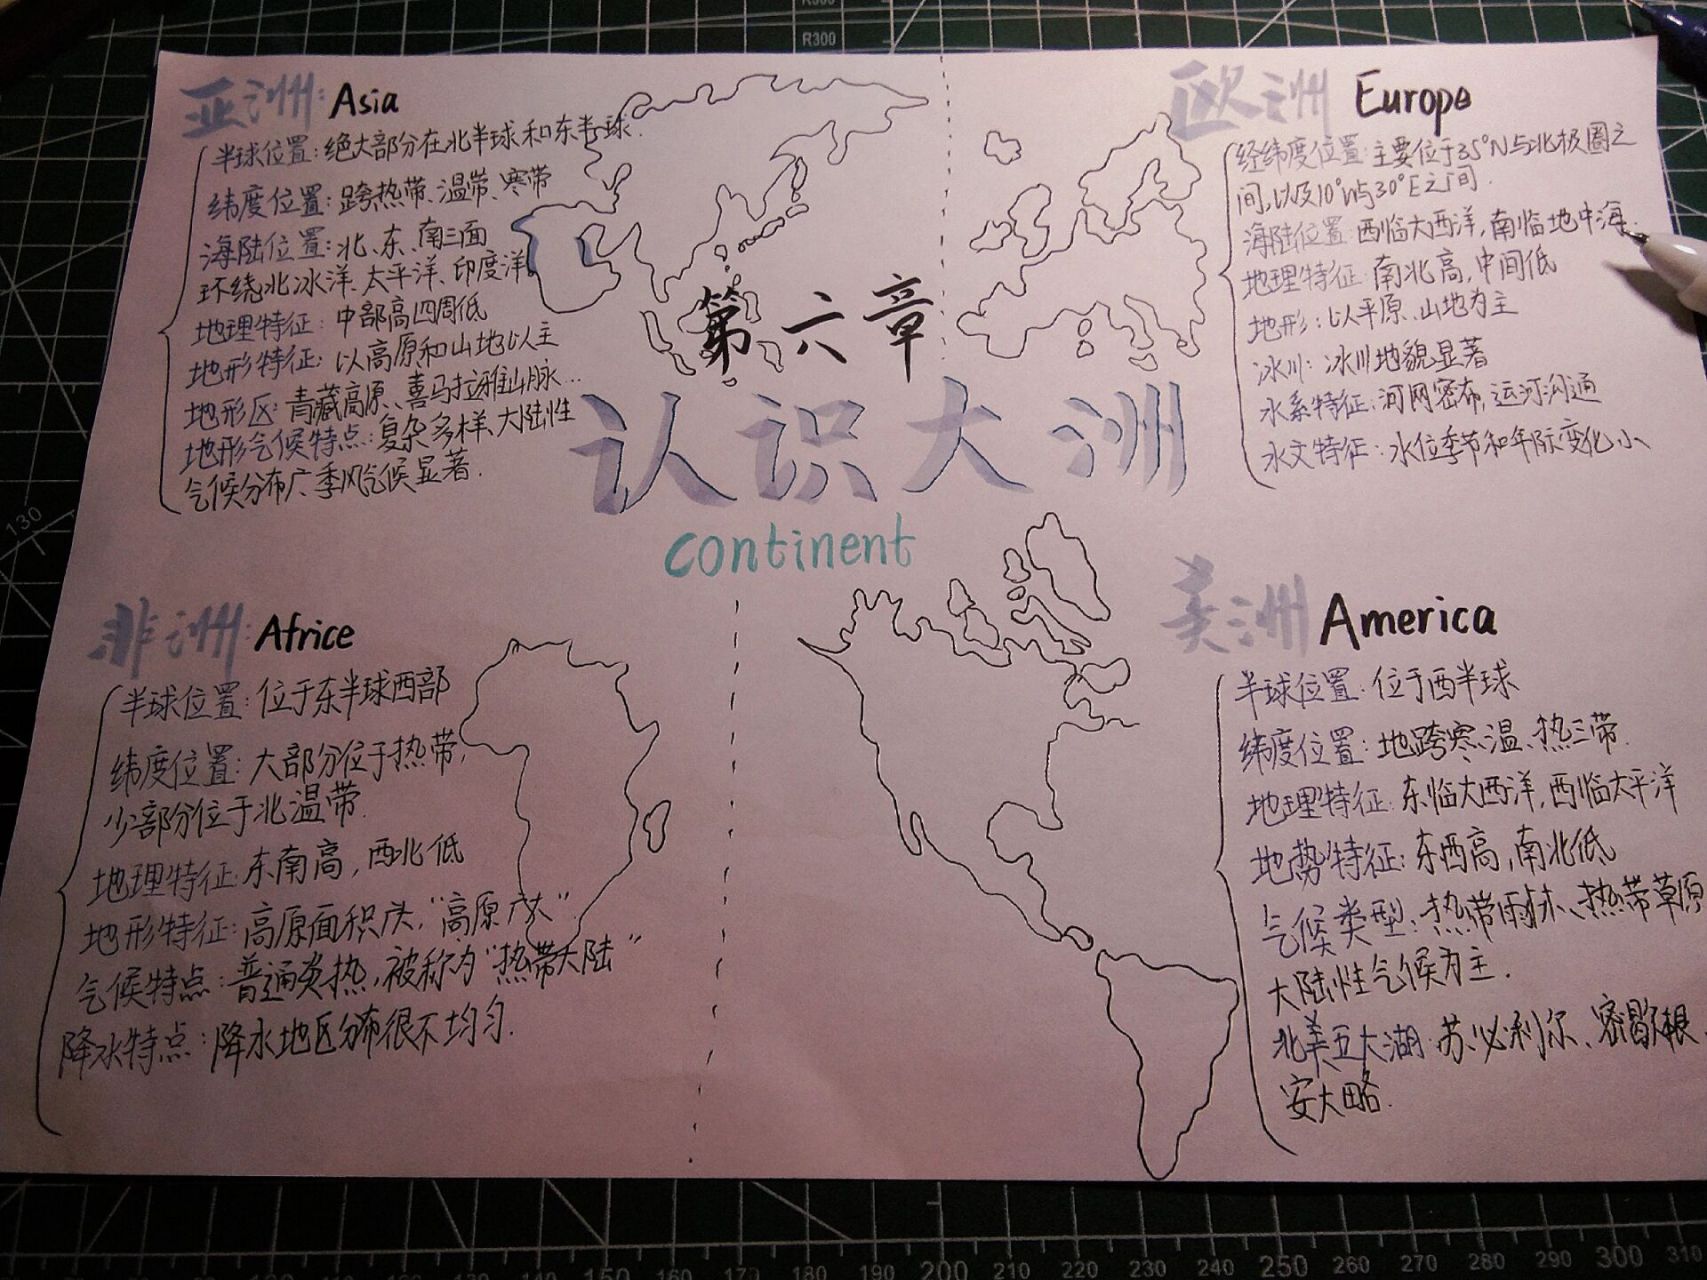 亚洲: Asia
半球位置:绝大部分在北半球和东半球.
纬度位置:跨热带、温带、寒带
海陆位置:北、东、南三面
环绕北冰洋、太平洋、印度洋
地理特征:中部高四周低
地形特征:以高原和山地以主
地形区:青藏高原、喜马拉雅山脉…
地形气候特点:复杂多样、大陆性
气候分布广、季风气候显著.
欧洲 Europe
经纬度位置:主要位于35°N与北极圈之
间,以及10°W与30°E之间.
海陆位置:西临大西洋,南临地中海.
地理特征:南北高,中间低
地形:以平原、山地为主
冰川:冰川地貌显著
水系特征:河网密布,运河沟通
水文特征:水位季节和年际变化小
第六章
认识大洲
continent
非洲: Africe
半球位置:位于东半球西部
纬度位置:大部分位于热带,
少部分位于北温带.
地理特征:东南高,西北低
地形特征:高原面积广,“高原大陆”
气候特点:普遍炎热,被称为“热带大陆”
降水特点:降水地区分布很不均匀.
美洲 America
半球位置:位于西半球
纬度位置:地跨寒、温、热三带.
地理特征:东临大西洋,西临太平洋
地势特征:东西高,南北低
气候类型:热带雨林、热带草原
大陆性气候为主.
北美五大湖:苏必利尔、密歇根
安大略.
R300
130
150
160
170
180
190
200
210
220
230
240
250
260
270
280
290
300
310